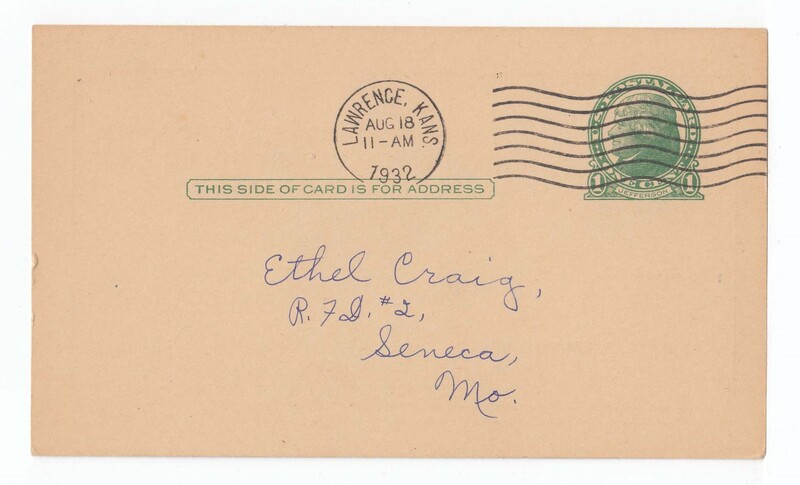 LAWRENCE, KANS.
AUG 18
11-AM
1932
U.S. POSTAL CARD
1 ONE CENT 1
JEFFERSON
THIS SIDE OF CARD IS FOR ADDRESS
Ethel Craig,
R.F.D. #2,
Seneca,
Mo.